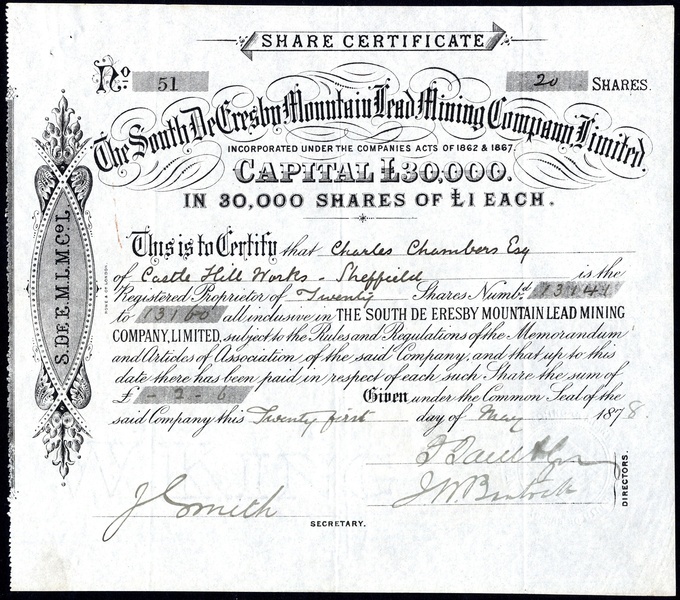 SHARE CERTIFICATE
No. 51
20 SHARES.
The South De Eresby Mountain Lead Mining Company Limited.
INCORPORATED UNDER THE COMPANIES ACTS OF 1862 & 1867.
CAPITAL £30,000.
IN 30,000 SHARES OF £1 EACH.
This is to Certify that Charles Chambers Esq
of Castle Hill Works - Sheffield is the
Registered Proprietor of Twenty Shares Numbd. 13141
to 13160 all inclusive in THE SOUTH DE ERESBY MOUNTAIN LEAD MINING
COMPANY, LIMITED, subject to the Rules and Regulations of the Memorandum
and Articles of Association of the said Company, and that up to this
date there has been paid in respect of each such Share the sum of
£ - 2 - 6 Given under the Common Seal of the
said Company this Twenty first day of May 1878.
J Smith
SECRETARY.
DIRECTORS.
S. DE E. M. L. M. Co. L